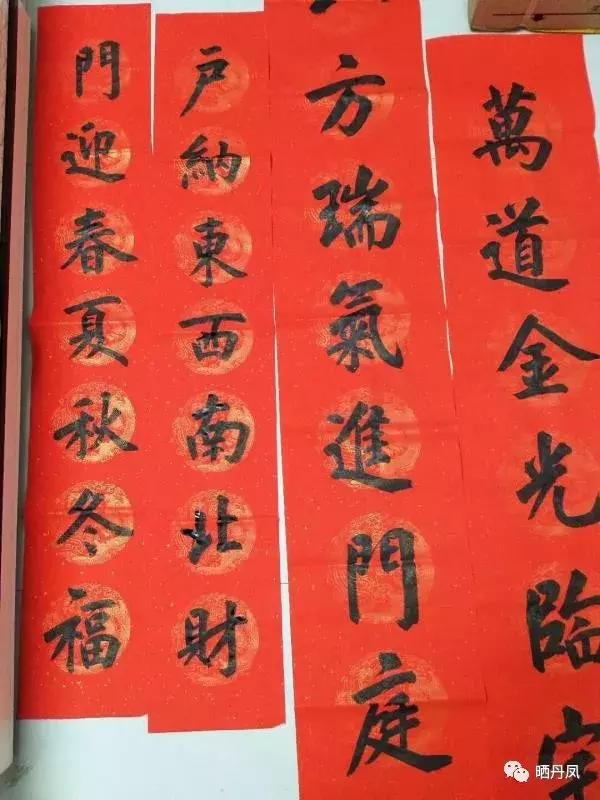 萬道金光臨
方瑞氣進門庭
户納東西南北財
門迎春夏秋冬福
晒丹凤